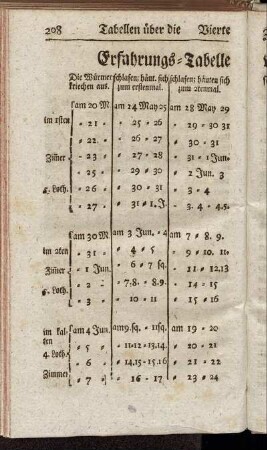 208 Tabellen über die Vierte
Erfahrungs-Tabelle
Die Würmer schlafen: häut. sich schlafen: häuten sich
kriechen aus. zum erstenmal. zum 2tenmal.
am 20 M. am 24 May 25 am 28 May 29
im 1sten - 21 - 25 - 26 - 29 - 30 31
- 22 - 26 - 27 - 30 - 31
Zimer - 23 - 28 - 29 - 31 - 1 Jun.
- 25 - 29 - 30 - 2 Jun. 3
5. Loth. - 26 - 30 - 31 - 3 - 4
- 27 - 31 - 1. J. - 3. 4. 4. 5.
am 30 M. am 3 Jun. - 4 am 7 - 8. 9.
im 2ten - 31 - 4 - 5 - 9. 10. 11.
Zimer - 1 Jun. - 6 - 7 sq. - 11 - 12.13
5. Loth. - 2 - 7.8. - 8.9. - 14 - 15
- 3 - 10 - 11 - 15 - 16
im kal- am 4 Jun. am 9. sq. - 11 sq. am 19 - 20
ten - 5 - 11-12-13.14. - 20 - 21
4. Loth. - 6 - 14.15 - 15.16 - 21 - 22
Zimmer - 7 - 16 - 17 - 23 - 24